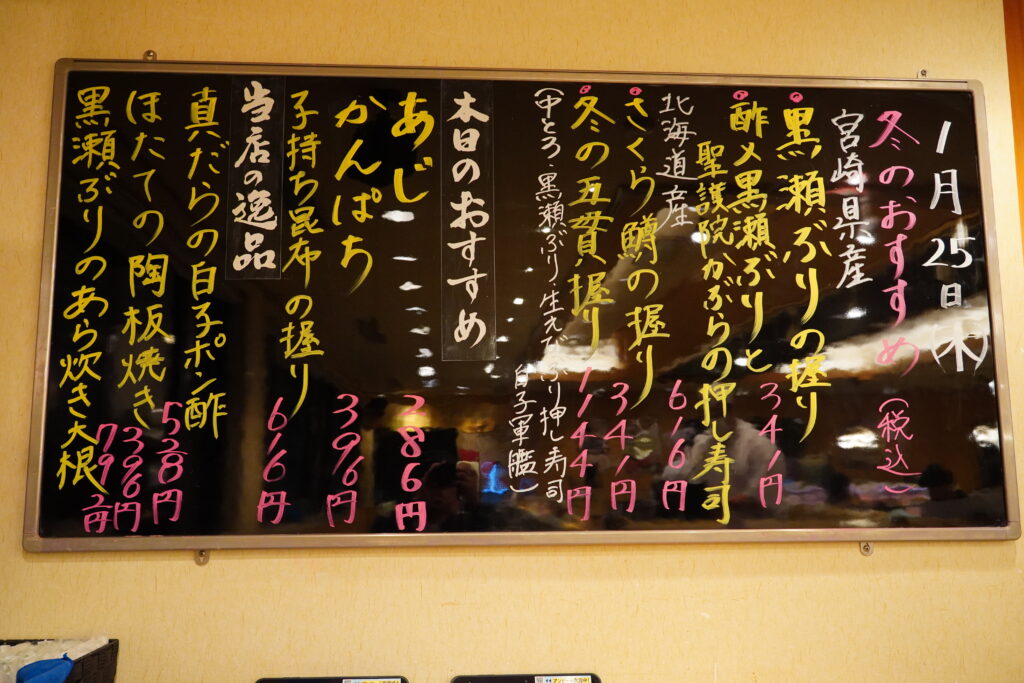 1月25日(木)
冬のおすすめ(税込)
宮崎県産
黒瀬ぶりの握り 341円
酢〆黒瀬ぶりと
聖護院かぶらの押し寿司 616円
北海道産
さくら鱒の握り 341円
冬の五貫握り 1,144円
(中とろ・黒瀬ぶり・生えび・ぶり押し寿司
白子軍艦)
本日のおすすめ
あじ 286円
かんぱち 396円
子持ち昆布の握り 616円
当店の逸品
真だらの白子ポン酢 528円
ほたての陶板焼き 396円
黒瀬ぶりのあら炊き大根